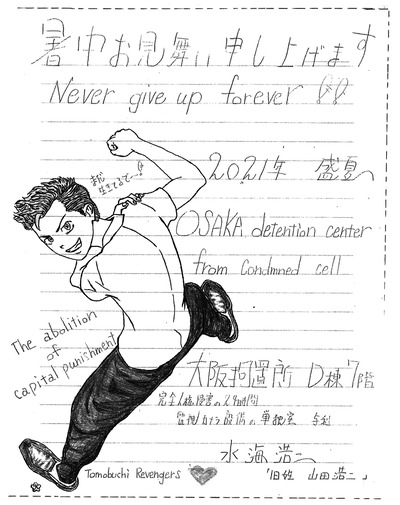 暑中お見舞い申し上げます
Never give up forever !!
2021年 盛夏
まだ
生きてるで…!
OSAKA detention center
from Condmned cell
The abolition
of
capital punishment
大阪拘置所 D棟7階
完全人権侵害の24時間
監視カメラ設備の単独室 与利
水海浩一
Tomobuchi Revengers
「旧姓 山田浩二」